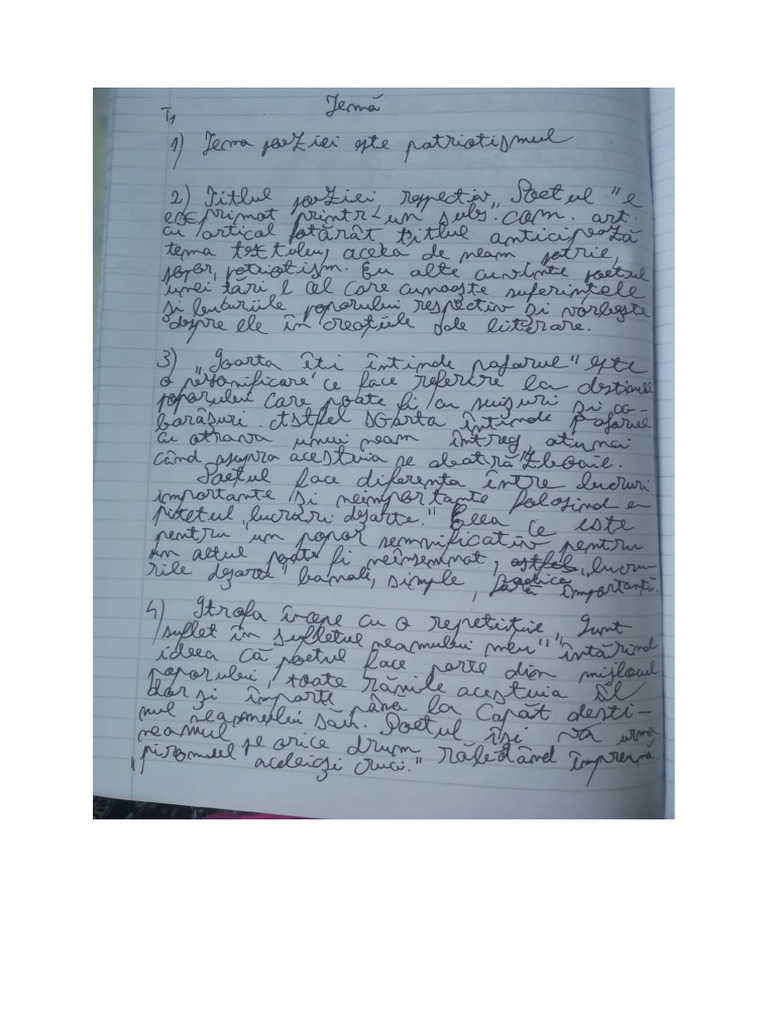 Temă
T1
1) Tema poeziei este patriotismul
2) Titlul poeziei respectiv „Poetul" e
exprimat printr-un subs. com. art.
cu articol hotărât titlul anticipează
tema textului, aceea de neam patrie,
popor, patriotism. Cu alte cuvinte poetul
unei țări e cel care cunoaște suferințele
și bucuriile poporului respectiv și vorbește
despre ele în creațiile sale literare.
3) „Soarta îți întinde paharul" este
o personificare ce face referire la destinul
poporului care poate fi cu suișuri și co-
borâșuri. Astfel soarta întinde paharul
cu otrava unui neam întreg atunci
când asupra acestuia se abat războaie.
Poetul face diferența între lucruri
importante și neimportante folosind e-
pitetul „lucrări deșarte." Ceea ce este
pentru un popor semnificativ pentru
un altul poate fi neînsemnat, astfel „lucru-
rile deșarte" banale, simple, fără importanță.
4) Strofa începe cu o repetiție „Sunt
suflet în sufletul neamului meu" întărind
ideea că poetul face parte din mijlocul
poporului, toate rănile acestuia îl
dor și împarte până la capăt desti-
nul neamului său. Poetul își va urma
neamul pe orice drum răbdând împreună
„piromului aceleiași cruci."